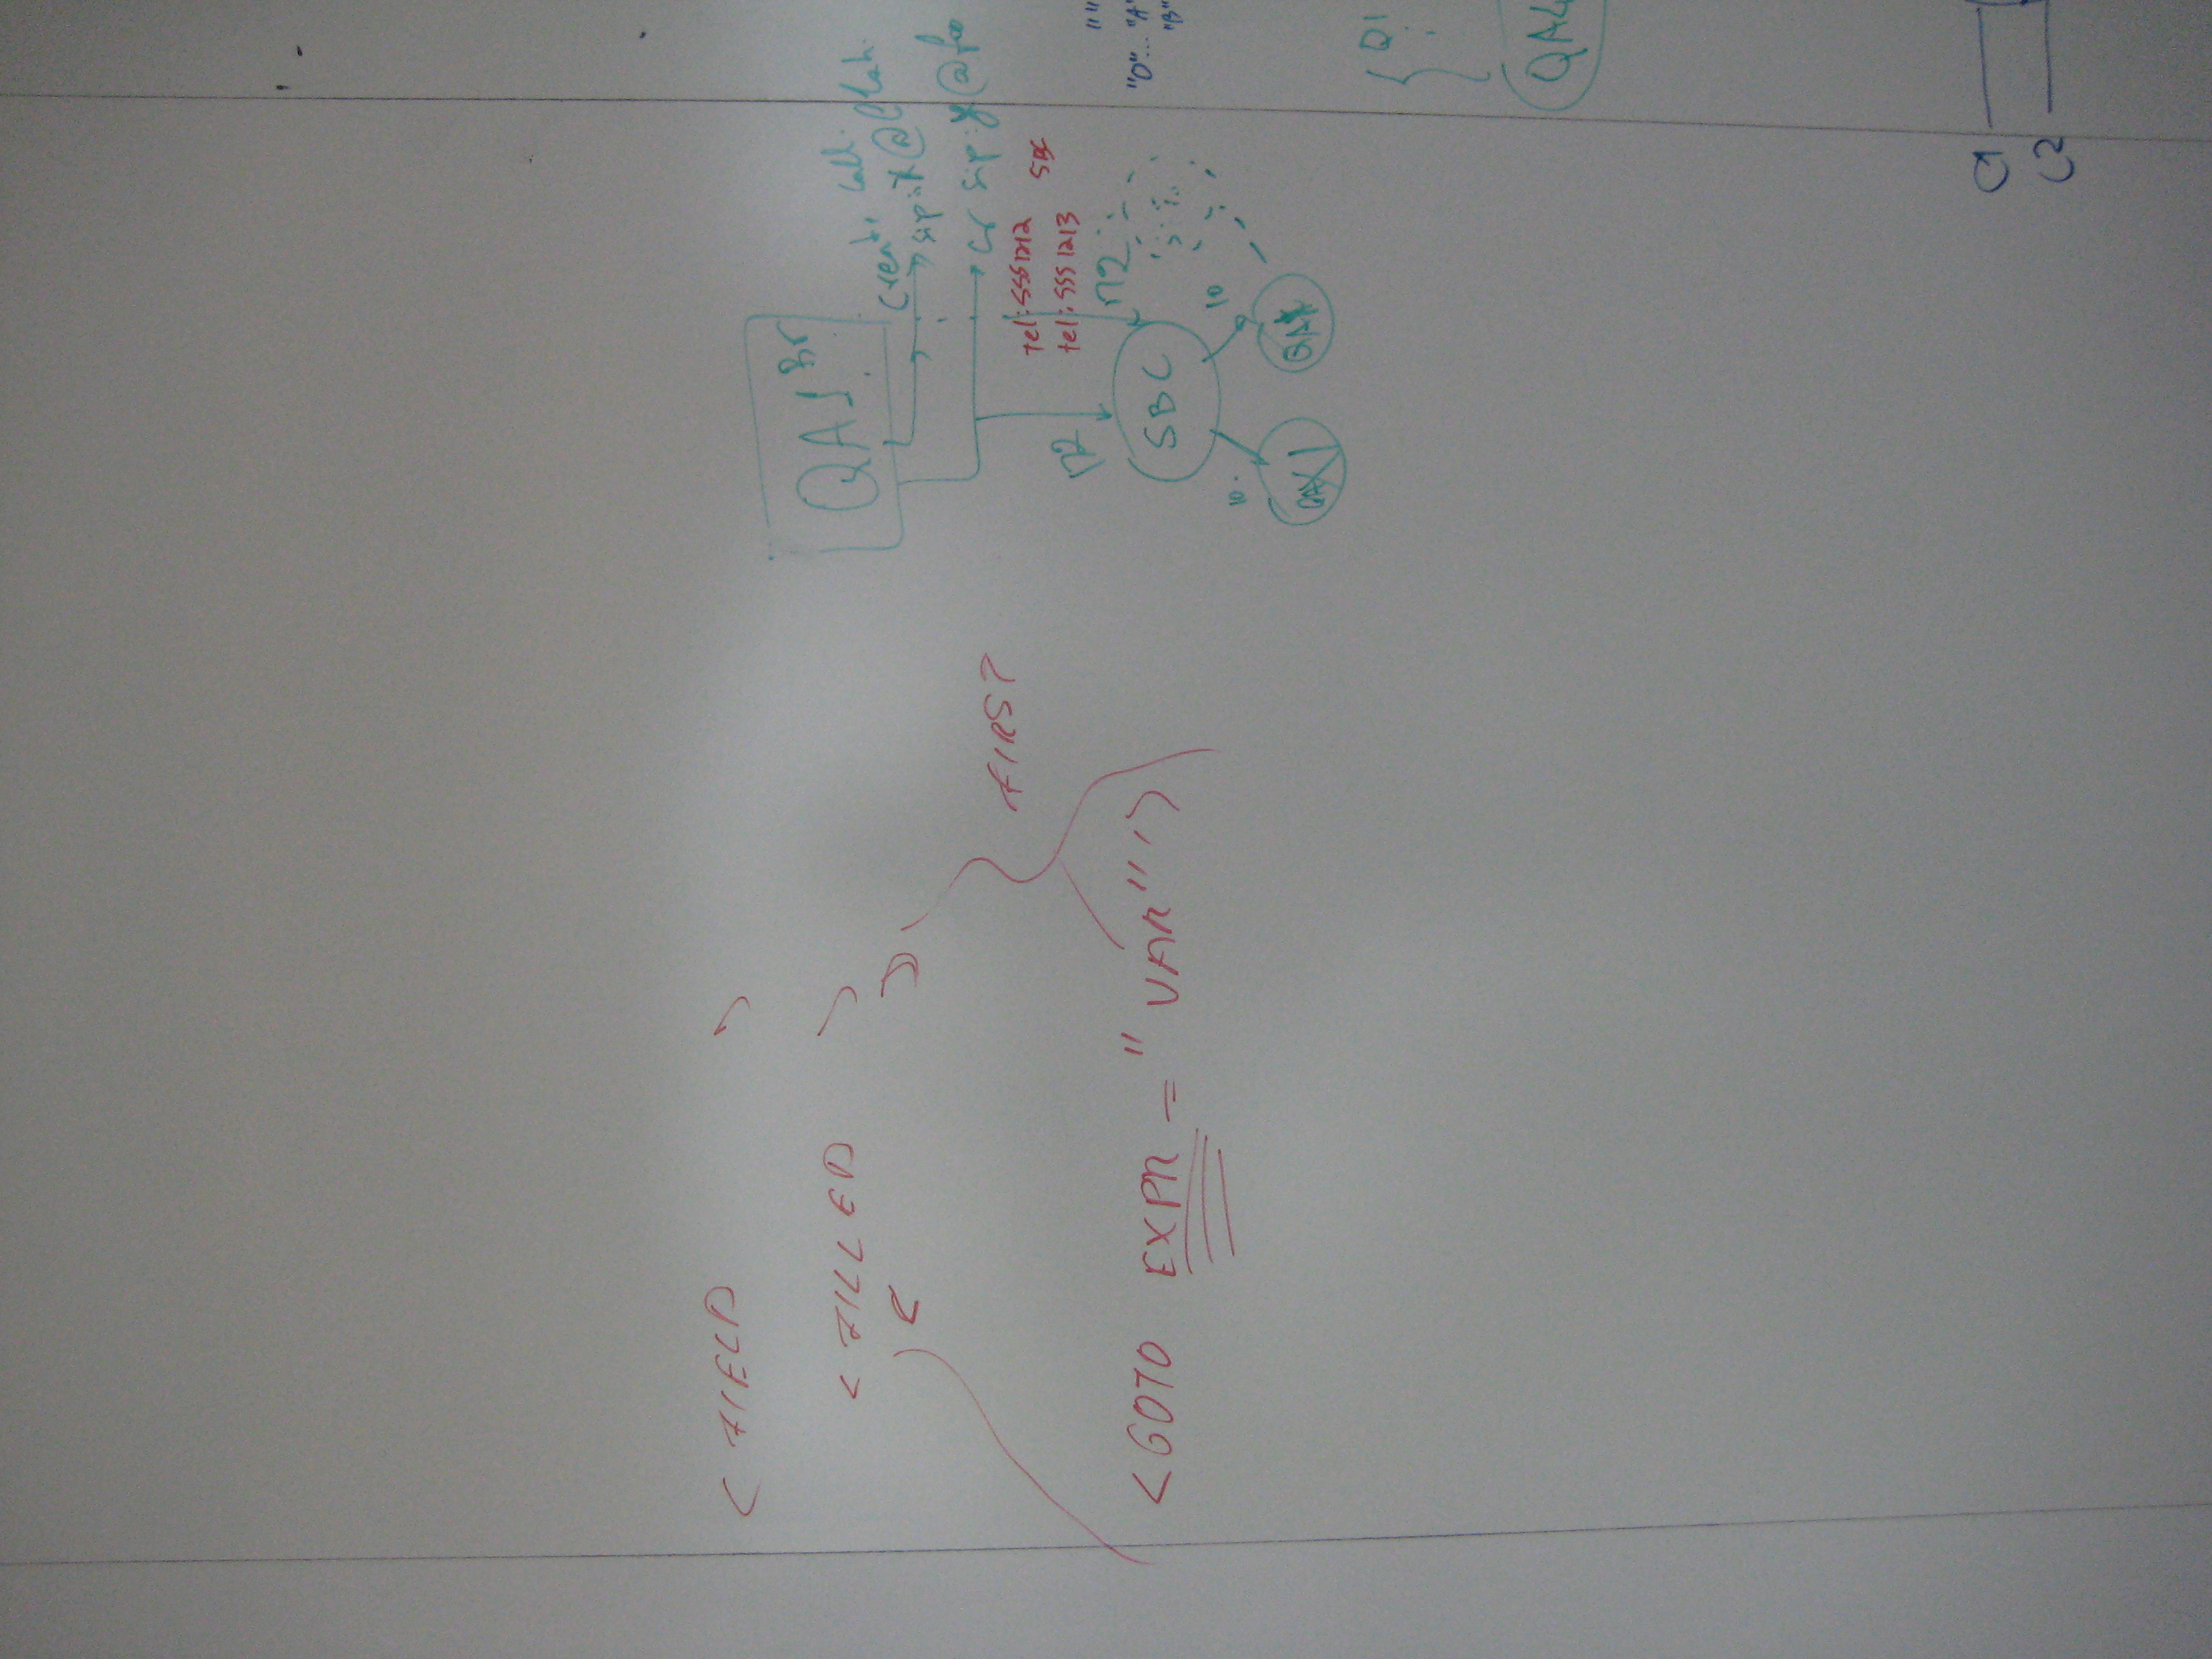 < FIELD >
< FILLED >
<
FIRST
<GOTO EXPR = "VAR" />
QA1
call
sip:x@blah
sip:y@foo
tel:5551212 SBC
tel:5551213
172
172
SBC
10.
10
""
"0"... "A"
"B"
Q1
C1
C2